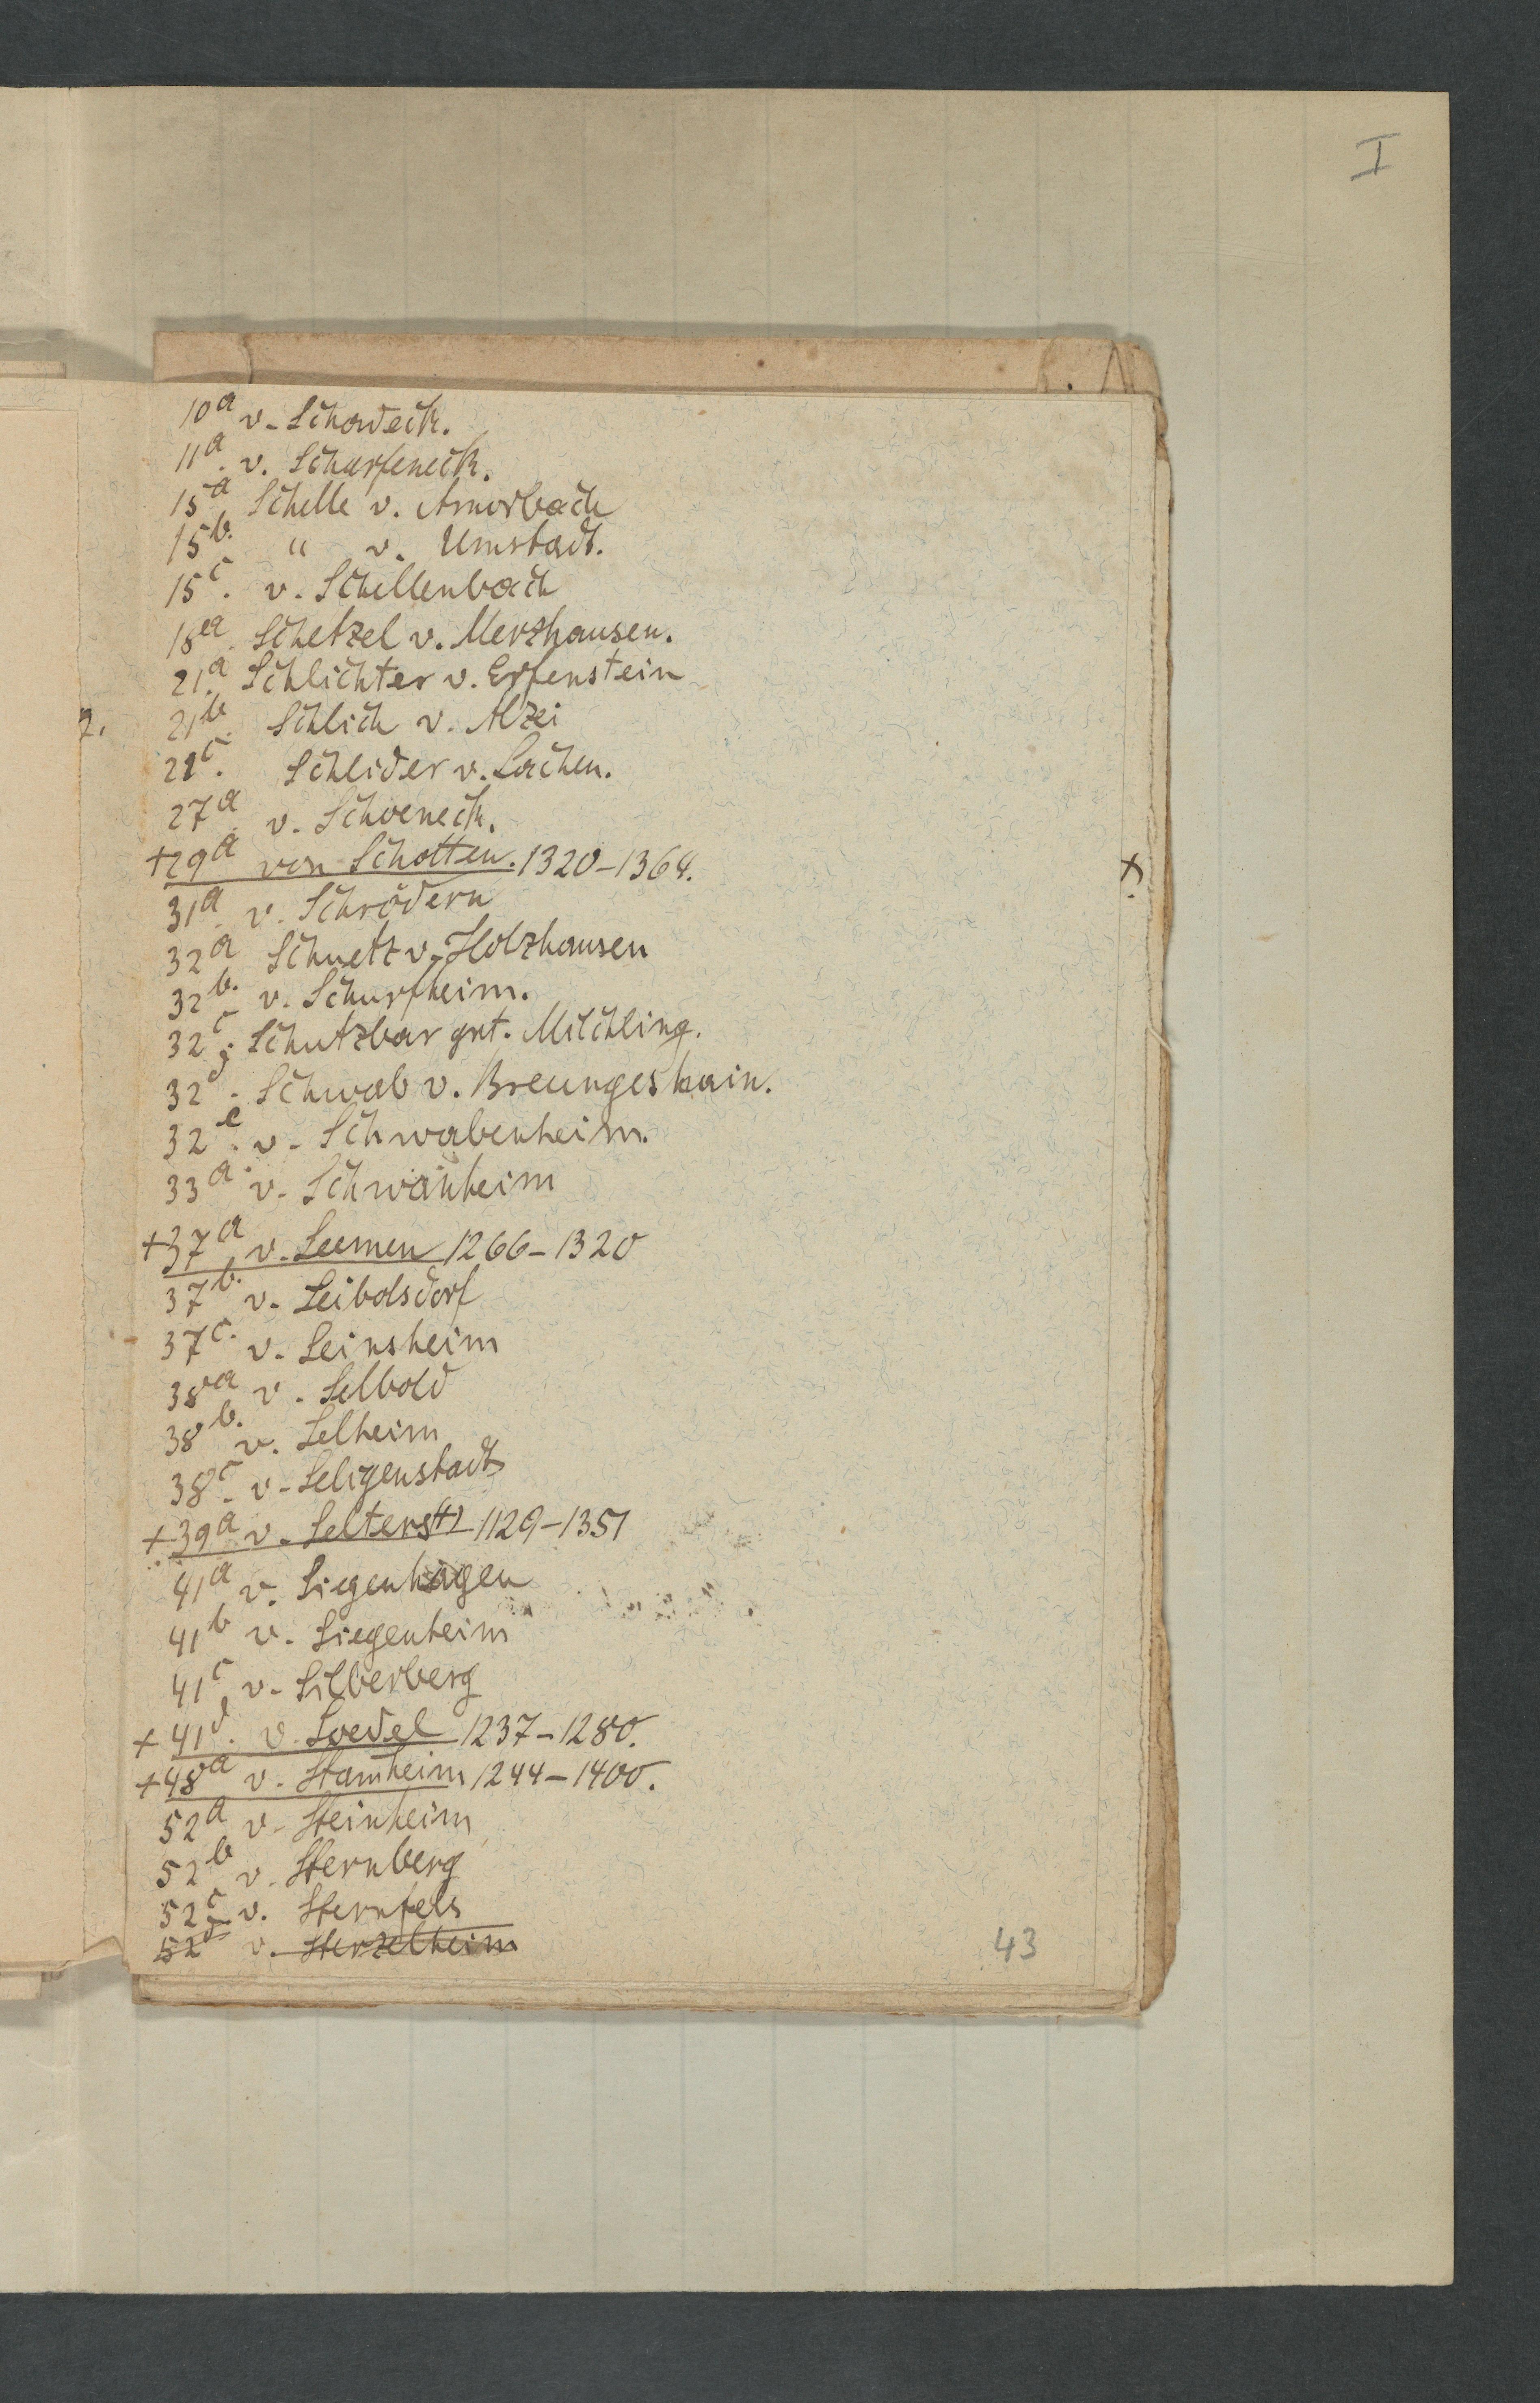 I
10a v. Schadeck.
11a. v. Scharfeneck.
15a Schelle v. Amorbach
15b. " v. Umstadt.
15c. v. Schellenbach
18a. Schetzel v. Merzhausen.
21a. Schlichter v. Erfenstein
21b. Schlich v. Alzei
21c. Schlider v. Lachen.
27a. v. Schoeneck.
+29a von Schotten. 1320-1364. x
31a. v. Schrödern
32a Schuetz v. Holzhausen
32b. v. Schurfheim.
32c. Schutzbar gnt. Milchling.
32d. Schwab v. Breungeshain.
32e. v. Schwabenheim.
33a. v. Schwanheim
+37a v. Seemen 1266-1320
37b. v. Seibolsdorf
37c. v. Seinsheim
38a v. Selbold
38b. v. Selheim
38c. v. Seligenstadt
+39a v. Selters(+) 1129-1351
41a v. Siegenhagen
41b v. Siegenheim
41c v. Silberberg
+41d. v. Soedel 1237-1280.
+48a v. Stam̄heim 1244-1400.
52a v. Steinheim
52b v. Sternberg
52c v. Sternfels
52d v. Sterzelheim
43